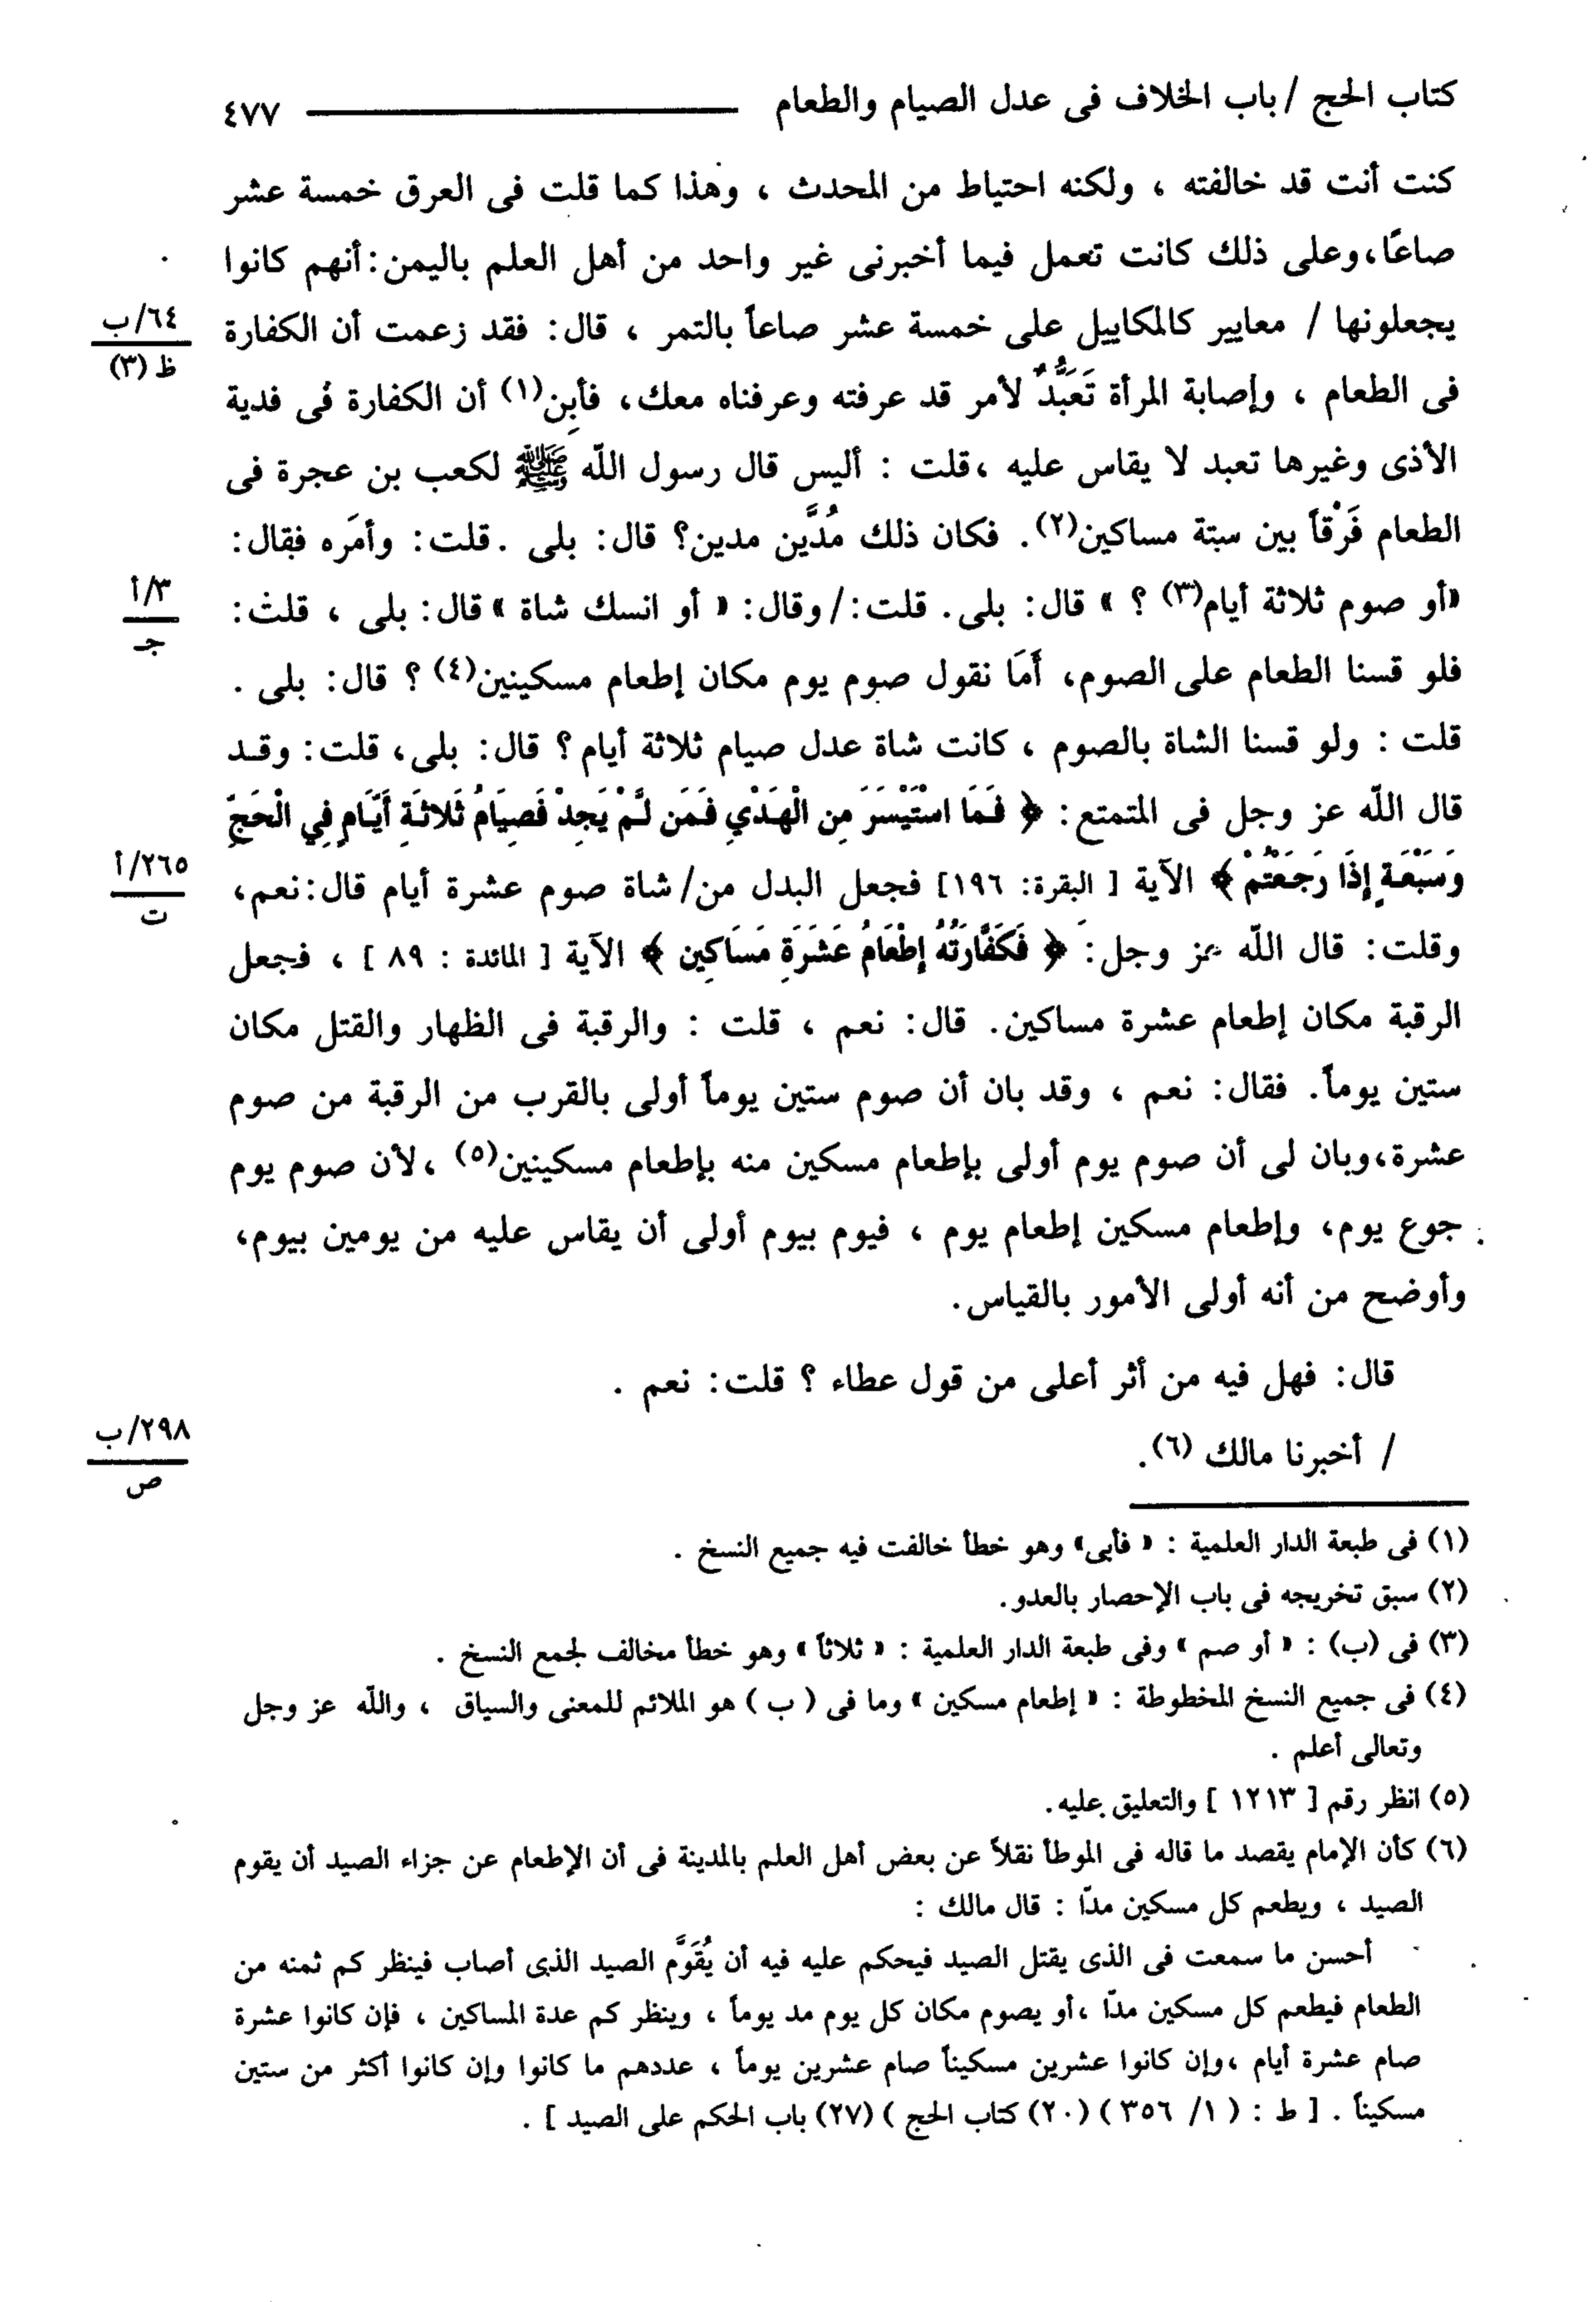 كتاب الحج / باب الخلاف فى عدل الصيام والطعام ـــــــ ٤٧٧
كنت أنت قد خالفته ، ولكنه احتياط من المحدث ، وهذا كما قلت فى العرق خمسة عشر
صاعًا،وعلى ذلك كانت تعمل فيما أخبرنى غير واحد من أهل العلم باليمن:أنهم كانوا
يجعلونها / معايير كالمكاييل على خمسة عشر صاعاً بالتمر ، قال: فقد زعمت أن الكفارة
٦٤/ب
ظ (٣)
فى الطعام ، وإصابة المرأة تَعَبُّدٌ لأمر قد عرفته وعرفناه معك، فأبِن(١) أن الكفارة فى فدية
الأذى وغيرها تعبد لا يقاس عليه ،قلت : أليس قال رسول اللّه ﷺ لكعب بن عجرة فى
الطعام فَرْقاً بين ستة مساكين(٢). فكان ذلك مُدَّين مدين؟ قال: بلى .قلت: وأمَره فقال:
«أو صوم ثلاثة أيام(٣) ؟ » قال: بلى. قلت:/وقال: « أو انسك شاة »قال: بلى ، قلت:
٣/أ
جـ
فلو قسنا الطعام على الصوم، أَمَا نقول صوم يوم مكان إطعام مسكينين(٤) ؟ قال: بلى .
قلت : ولو قسنا الشاة بالصوم ، كانت شاة عدل صيام ثلاثة أيام؟ قال: بلى، قلت: وقـد
قال اللّه عز وجل فى المتمتع: ﴿ فَمَا اسْتَيْسَرَ مِنَ الْهَدْيِ فَمَن لَّمْ يَجِدْ فَصِيَامُ ثَلاثَةِ أَيَّامٍ فِي الْحَجِّ
وَسَبْعَةٍ إِذَا رَجَعْتُمْ ﴾ الآية [ البقرة: ١٩٦] فجعل البدل من/شاة صوم عشرة أيام قال:نعم،
٢٦٥/أ
ت
وقلت: قال اللّه عز وجل: ﴿ فَكَفَّارَتُهُ إِطْعَامُ عَشَرَةِ مَسَاكِينَ ﴾ الآية [ المائدة : ٨٩ ] ، فجعل
الرقبة مكان إطعام عشرة مساكين. قال: نعم ، قلت : والرقبة فى الظهار والقتل مكان
ستين يوماً. فقال: نعم ، وقد بان أن صوم ستين يوماً أولى بالقرب من الرقبة من صوم
عشرة،وبان لى أن صوم يوم أولى بإطعام مسكين منه بإطعام مسكينين(٥) ،لأن صوم يوم
جوع يوم، وإطعام مسكين إطعام يوم ، فيوم بيوم أولى أن يقاس عليه من يومين بيوم،
وأوضح من أنه أولى الأمور بالقياس.
قال: فهل فيه من أثر أعلى من قول عطاء ؟ قلت: نعم .
/ أخبرنا مالك (٦).
٢٩٨/ب
ص
(١) فى طبعة الدار العلمية : « فأبى» وهو خطأ خالفت فيه جميع النسخ .
(٢) سبق تخريجه فى باب الإحصار بالعدو.
(٣) فى (ب) : « أو صم » وفى طبعة الدار العلمية : « ثلاثاً » وهو خطأ مخالف لجمع النسخ .
(٤) فى جميع النسخ المخطوطة : « إطعام مسكين » وما فى ( ب ) هو الملائم للمعنى والسياق ، واللّه عز وجل
وتعالى أعلم .
(٥) انظر رقم [ ١٢١٣ ] والتعليق عليه.
(٦) كأن الإمام يقصد ما قاله فى الموطأ نقلاً عن بعض أهل العلم بالمدينة فى أن الإطعام عن جزاء الصيد أن يقوم
الصيد ، ويطعم كل مسكين مدّا : قال مالك :
أحسن ما سمعت فى الذى يقتل الصيد فيحكم عليه فيه أن يُقَوَّم الصيد الذى أصاب فينظر كم ثمنه من
الطعام فيطعم كل مسكين مدّا ،أو يصوم مكان كل يوم مد يوماً ، وينظر كم عدة المساكين ، فإن كانوا عشرة
صام عشرة أيام ،وإن كانوا عشرين مسكيناً صام عشرين يوماً ، عددهم ما كانوا وإن كانوا أكثر من ستين
مسكيناً . [ ط : ( ١/ ٣٥٦ ) (٢٠) كتاب الحج ) (٢٧) باب الحكم على الصيد ] .